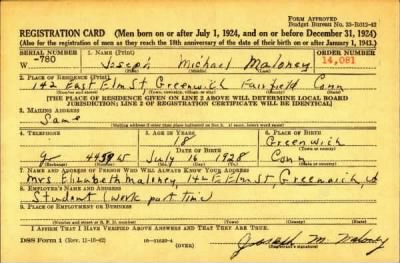 FORM APPROVED
Budget Bureau No. 33-R013-42
REGISTRATION CARD (Men born on or after July 1, 1924, and on or before December 31, 1924)
(Also for the registration of men as they reach the 18th anniversary of the date of their birth on or after January 1, 1943.)
SERIAL NUMBER 1. NAME (Print) ORDER NUMBER
W -780 Joseph Michael Maloney 14,081
(First) (Middle) (Last)
2. PLACE OF RESIDENCE (Print)
142 East Elm St Greenwich Fairfield Conn
(Number and street) (Town, township, village, or city) (County) (State)
[THE PLACE OF RESIDENCE GIVEN ON LINE 2 ABOVE WILL DETERMINE LOCAL BOARD
JURISDICTION; LINE 2 OF REGISTRATION CERTIFICATE WILL BE IDENTICAL]
3. MAILING ADDRESS
Same
(Mailing address if other than place indicated on line 2. If same, insert word same)
4. TELEPHONE 5. AGE IN YEARS 6. PLACE OF BIRTH
18 Greenwich
DATE OF BIRTH (Town or county)
4459 W July 16 1928 Conn
(Exchange) (Number) (Mo.) (Day) (Yr.) (State or country)
7. NAME AND ADDRESS OF PERSON WHO WILL ALWAYS KNOW YOUR ADDRESS
Mrs Elizabeth Maloney, 142 E Elm St, Greenwich, Ct
8. EMPLOYER'S NAME AND ADDRESS
Student (work part time)
9. PLACE OF EMPLOYMENT OR BUSINESS
(Number and street or R. F. D. number) (Town) (County) (State)
I AFFIRM THAT I HAVE VERIFIED ABOVE ANSWERS AND THAT THEY ARE TRUE.
DSS Form 1 (Rev. 11-16-42) (OVER) Joseph M. Maloney